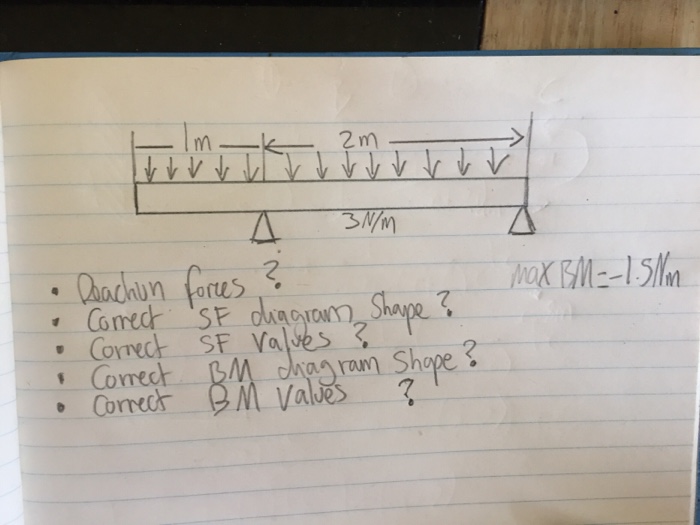 1m 2m
3N/M
• Reaction forces ?
max BM = -1.5Nm
• Correct SF diagram Shape ?
• Correct SF values ?
• Correct BM diagram Shape ?
• Correct BM Values ?